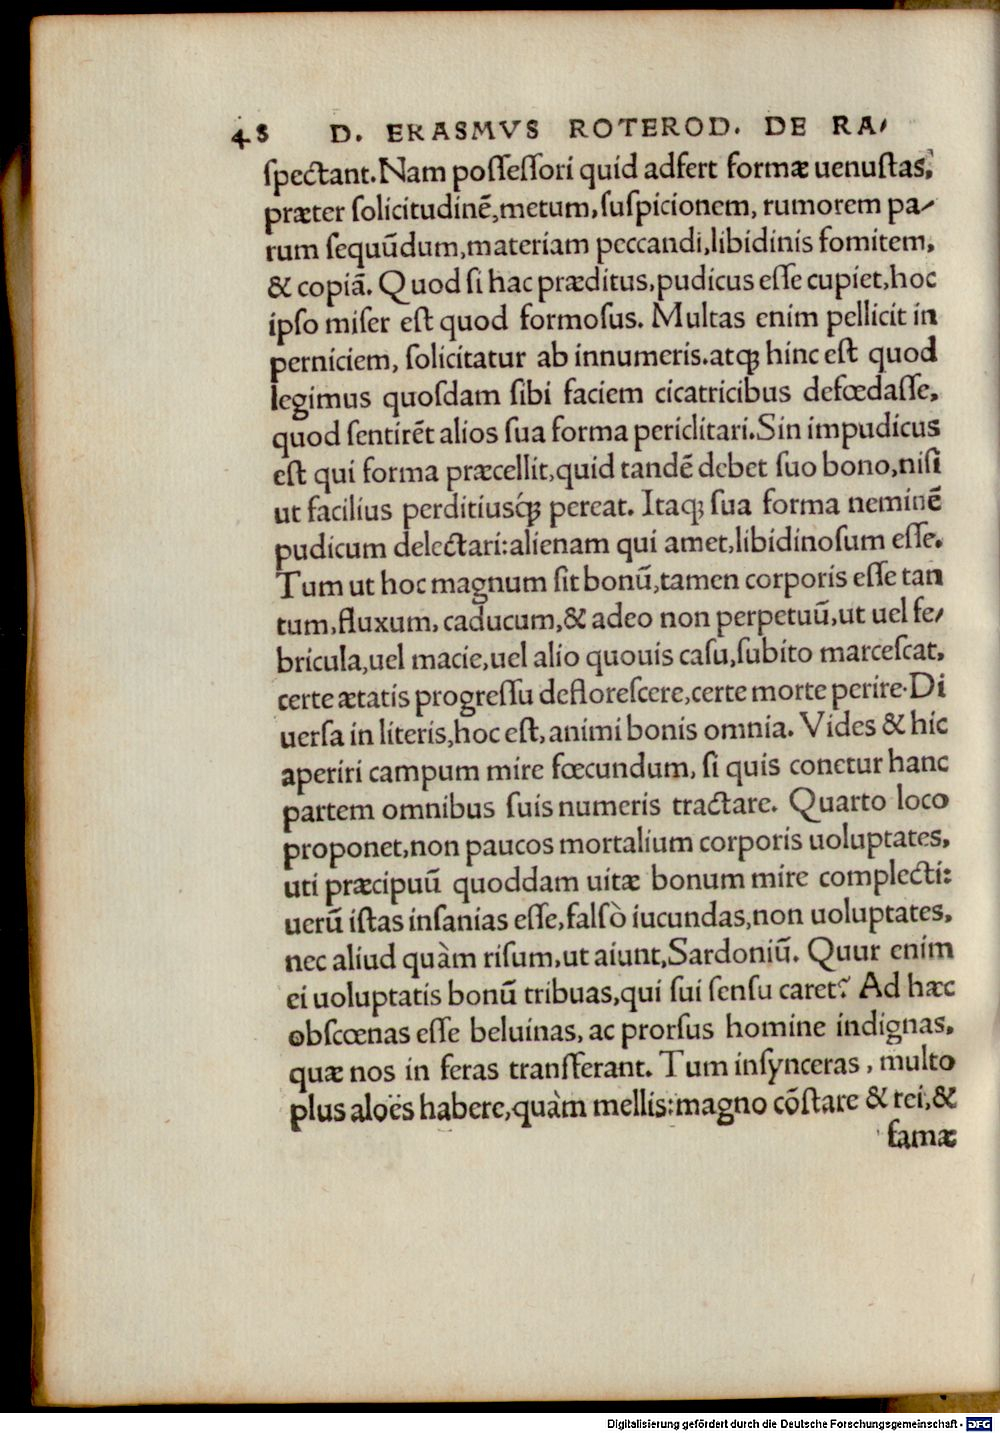 48 D. ERASMVS ROTEROD. DE RA⸗
ſpectant. Nam poſſeſſori quid adfert formæ uenuſtas,
præter ſolicitudinē, metum, ſuſpicionem, rumorem pa⸗
rum ſequūdum, materiam peccandi, libidinis fomitem,
& copiā. Quod ſi hac præditus, pudicus eſſe cupiet, hoc
ipſo miſer eſt quod formoſus. Multas enim pellicit in
perniciem, ſolicitatur ab innumeris. atqꝫ hinc eſt quod
legimus quoſdam ſibi faciem cicatricibus defœdaſſe,
quod ſentirēt alios ſua forma periclitari. Sin impudicus
eſt qui forma præcellit, quid tandē debet ſuo bono, niſi
ut facilius perditiusq́ꝫ pereat. Itaqꝫ ſua forma neminē
pudicum delectari: alienam qui amet, libidinoſum eſſe.
Tum ut hoc magnum ſit bonū, tamen corporis eſſe tan
tum, fluxum, caducum, & adeo non perpetuū, ut uel fe⸗
bricula, uel macie, uel alio quouis caſu, ſubito marceſcat,
certe ætatis progreſſu defloreſcere, certe morte perire. Di
uerſa in literis, hoc eſt, animi bonis omnia. Vides & hic
aperiri campum mire fœcundum, ſi quis conetur hanc
partem omnibus ſuis numeris tractare. Quarto loco
proponet, non paucos mortalium corporis uoluptates,
uti præcipuū quoddam uitæ bonum mire complecti:
uerū iſtas inſanias eſſe, falſò iucundas, non uoluptates,
nec aliud quàm riſum, ut aiunt, Sardoniū. Quur enim
ei uoluptatis bonū tribuas, qui ſui ſenſu caret? Ad hæc
obſcœnas eſſe beluinas, ac prorſus homine indignas,
quæ nos in feras transferant. Tum inſynceras, multo
plus aloës habere, quàm mellis: magno cōſtare & rei, &
famæ
Digitalisierung gefördert durch die Deutsche Forschungsgemeinschaft - DFG